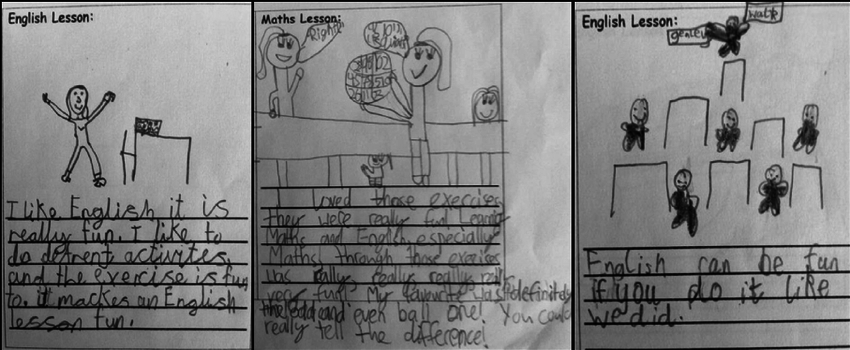 English Lesson:
I like English it is
really fun. I like to
do defrent activites,
and the exercise is fun
to. it mackes an English
lesson fun.
Maths Lesson:
Right!
I loved those exercises
they were really fun! Learning
Maths and English, especially
Maths through those exercises
was really, really really really
very fun! My favourite was definitely
the odd and even ball one! You could
really tell the difference!
English Lesson:
walk
English can be fun
if you do it like
we did.